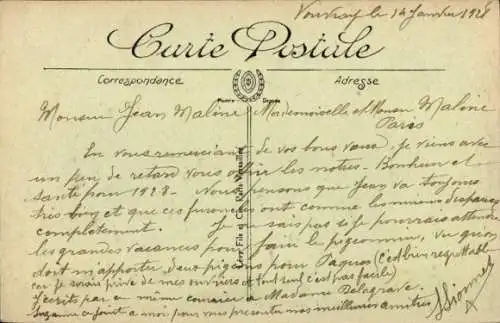 Vouvray le 14 Janvier 1928
Carte Postale
Correspondance
Adresse
Monsieur Jean Maline Mademoiselle et Monsieur Maline
Paris
En vous remerciant de vos bons vœux, je viens avec
un peu de retard vous offrir les nôtres. Bonheur et
santé pour 1928 - Nous pensons que Jean va toujours
très bien et que ces furoncles ont comme les miens disparus
complètement. Je ne sais pas si je pourrais attendre
les grandes vacances pour faire le pigeonneau, vu qu'on
doit m'apporter deux pigeons pour Pâques (c'est bien regrettable
car je serais privé de mes ouvriers et tout seul c'est pas facile)
J'écris par ce même courrier à Madame Delagrave.
Suzanne se joint à moi pour vous présenter nos meilleures amitiés